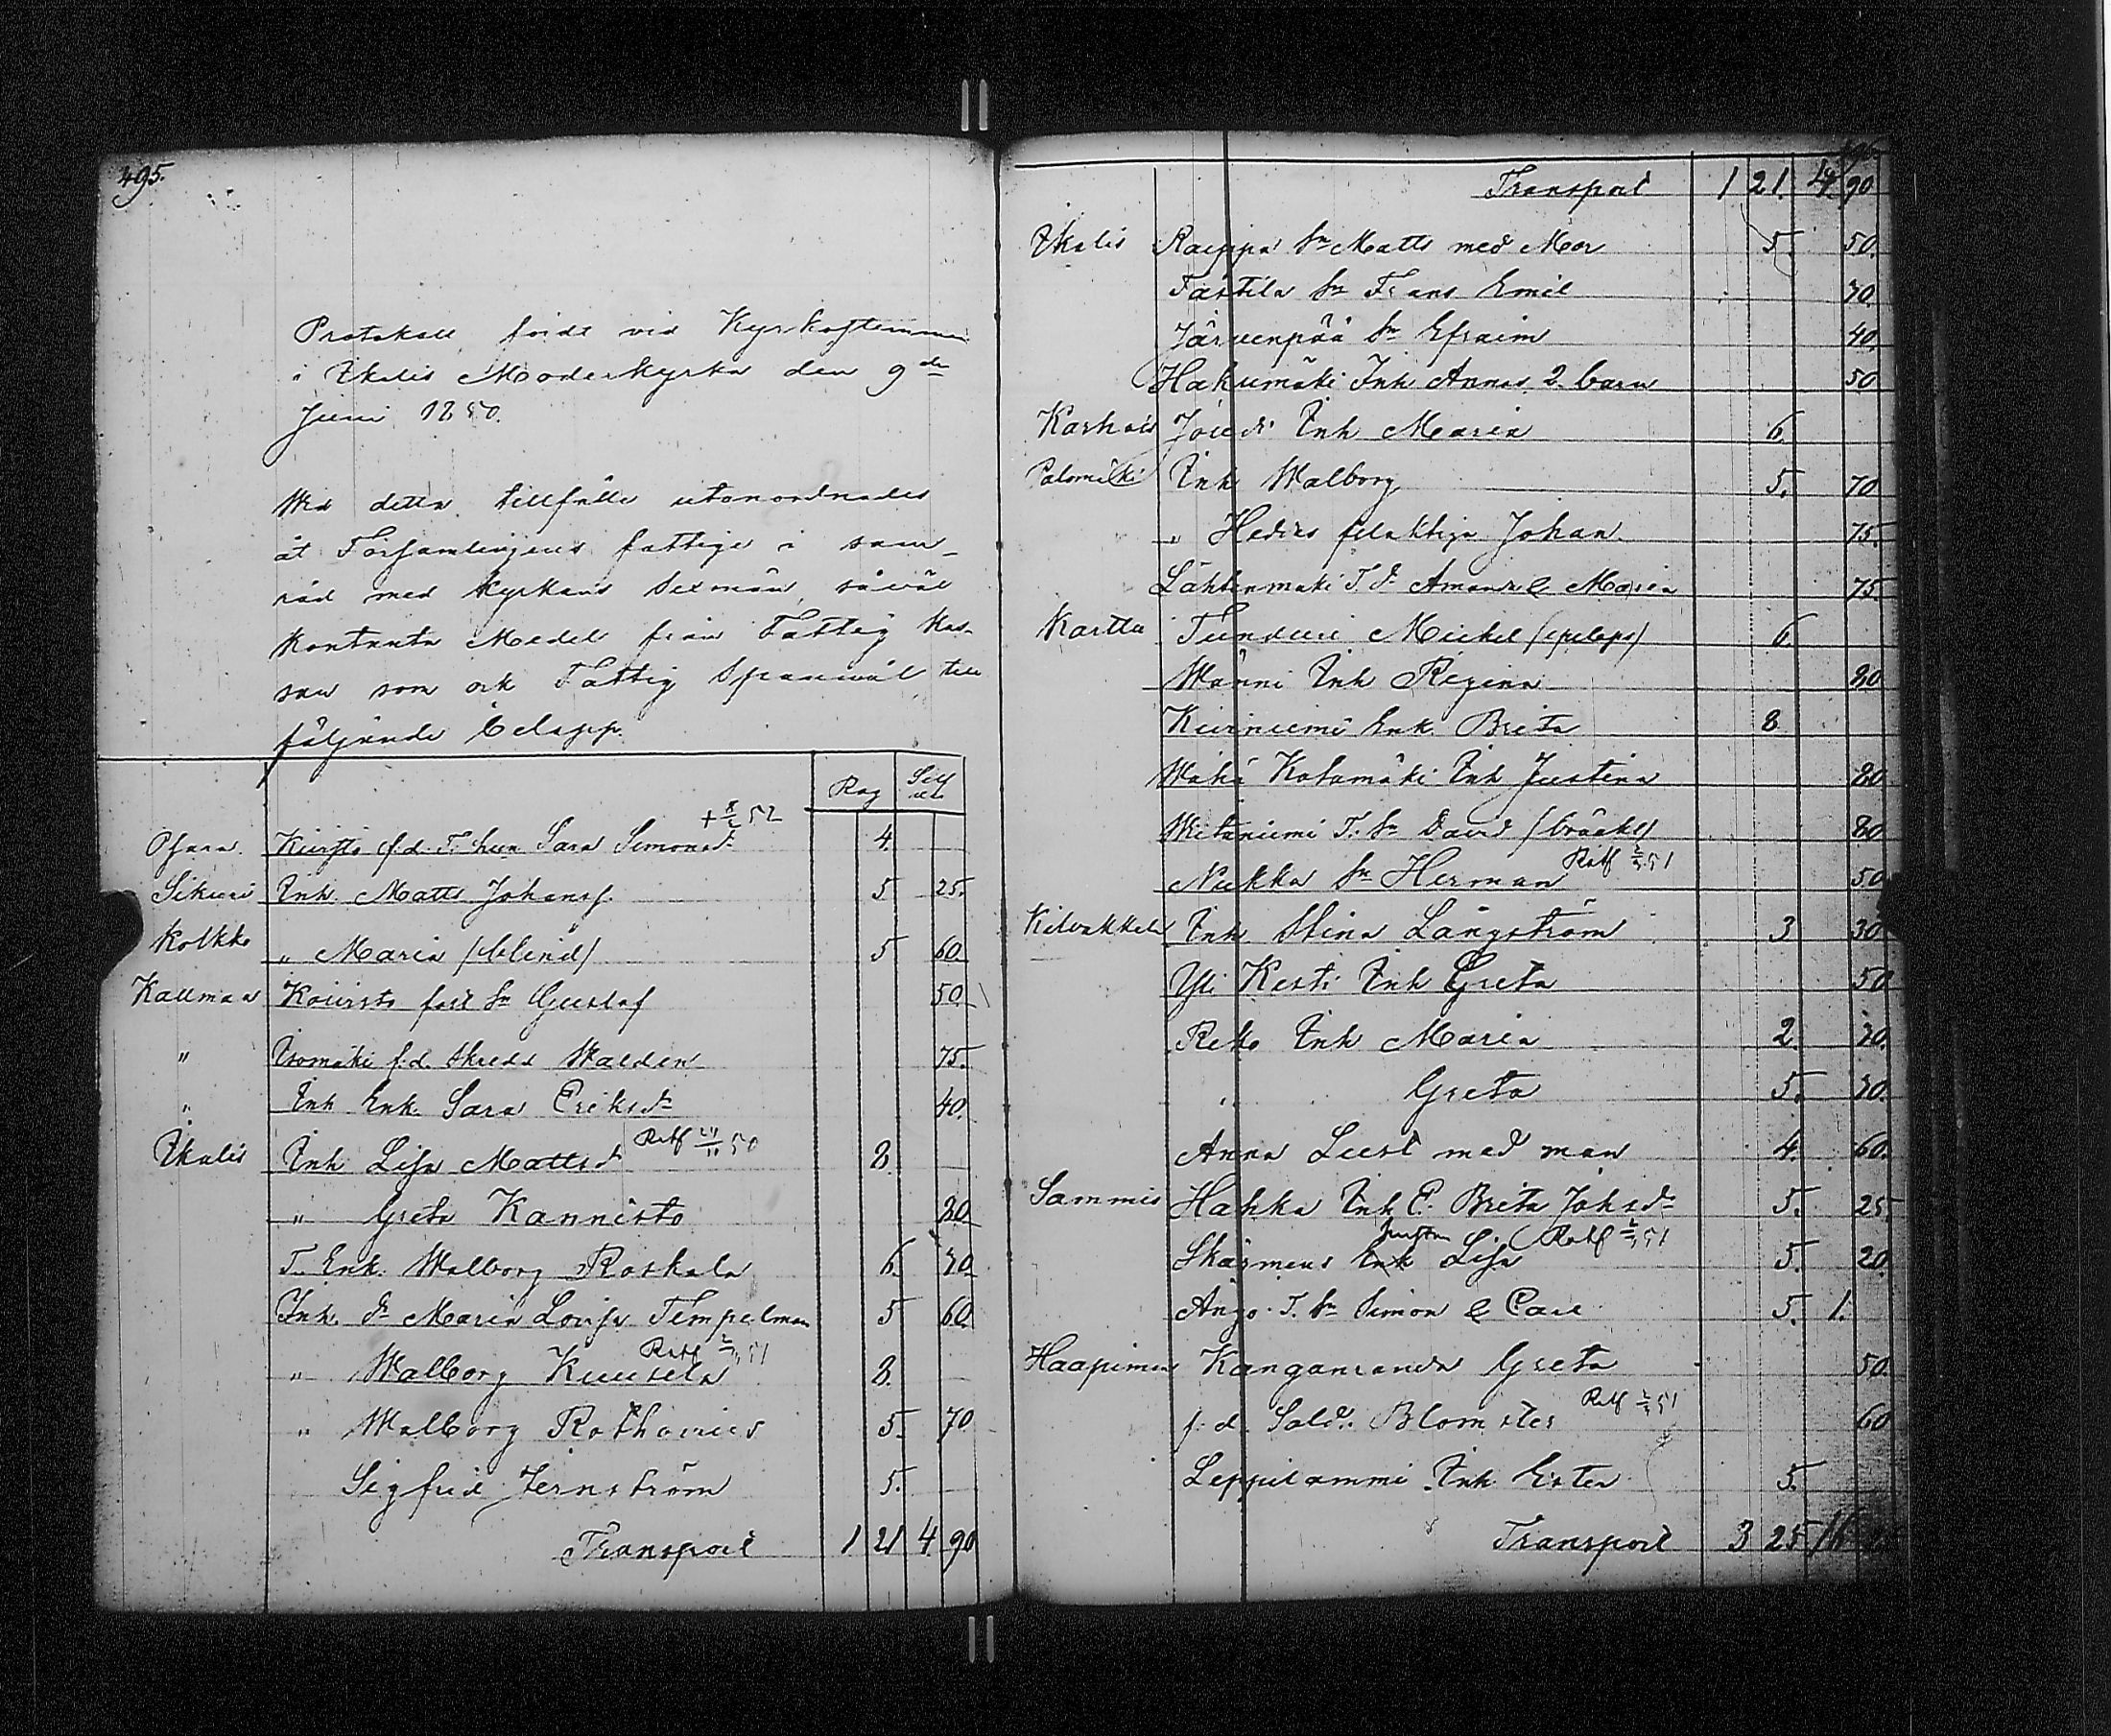 495.
Protokoll fördt vid Kyrkostemman
i Ikalis Moderkyrka den 9de
Juni 1850.
Wid detta tillfälle utanordnades
åt Församlingens fattige i sam-
råd med Kyrkans Sexmän, såväl
Kontanta Medel från Fattig Kas-
san som ock Fattig Spanmål till
följande belopp.
Råg Silf
+ 8/2 52
Osara f.d. T. hun Sara Simonsd:r 4.
Sikuri Inh. Matts Johanss. 5 25.
Kolkko " Maria (blind) 5 60
Kallmaa Kouvisto Sn Gustaf 50.
" Isomäki f.d. Skredd Walden 75.
" Inh Enk. Sara Eriksdr 40.
Ikalis Inh Lisa Mattsdr Ratf 24/11 50 8.
" Greta Kannisto 80
T. Enk. Walborg Roskala 6. 70
Inh. dr Maria Lovisa Tempelman 5 60.
" Walborg Kuusela Ratf 2/3 51 8.
" Walborg Rothovius 5. 70
Sigfrid Jernström 5.
Transport 1 21 4 90
496.
Transport 1 21. 4 90
Ikalis Raippa Sn Matts med Mor 5. 50.
Tastila Sn Frans Emil 70.
Järvenpää Sn Efraim 40.
Hakumäki Inh Annas 2 barn 50
Karhois Inh Maria 6.
Palomäki Inh Walborg 5. 70
" Hedvs Johan 75.
Lähteenmäki T. dr Amanda & Maria 75.
Kartta Tunduri Mickel 6.
Wänni Inh Regina 80
Kiviniemi Enk Brita 8
Wähä Kotamäki Inh Justina 80
Witaniemi T. Sn David (bråck) 80
Niukka Sn Herman Ratf 2/3 51 50
Kilvakkala Inh Stina Långström 3 30
Yli Kesti Inh Greta 50
Reko Inh Maria 2. 70.
" Greta 5. 70.
Anna Lust med man 4. 60.
Sammi Hakka Inh E. Brita Johsdr 5. 25.
Skärmens Lisa Ratf 2/3 51 5. 20.
Anjo T. Sn Simon & Carl 5. 1.
Haapimaa Kanganranda Greta 50.
f.d. Sold. Blomster Ratf 2/3 51 60
Leppilammi Inh. Ester 5.
Transport 3 25 16